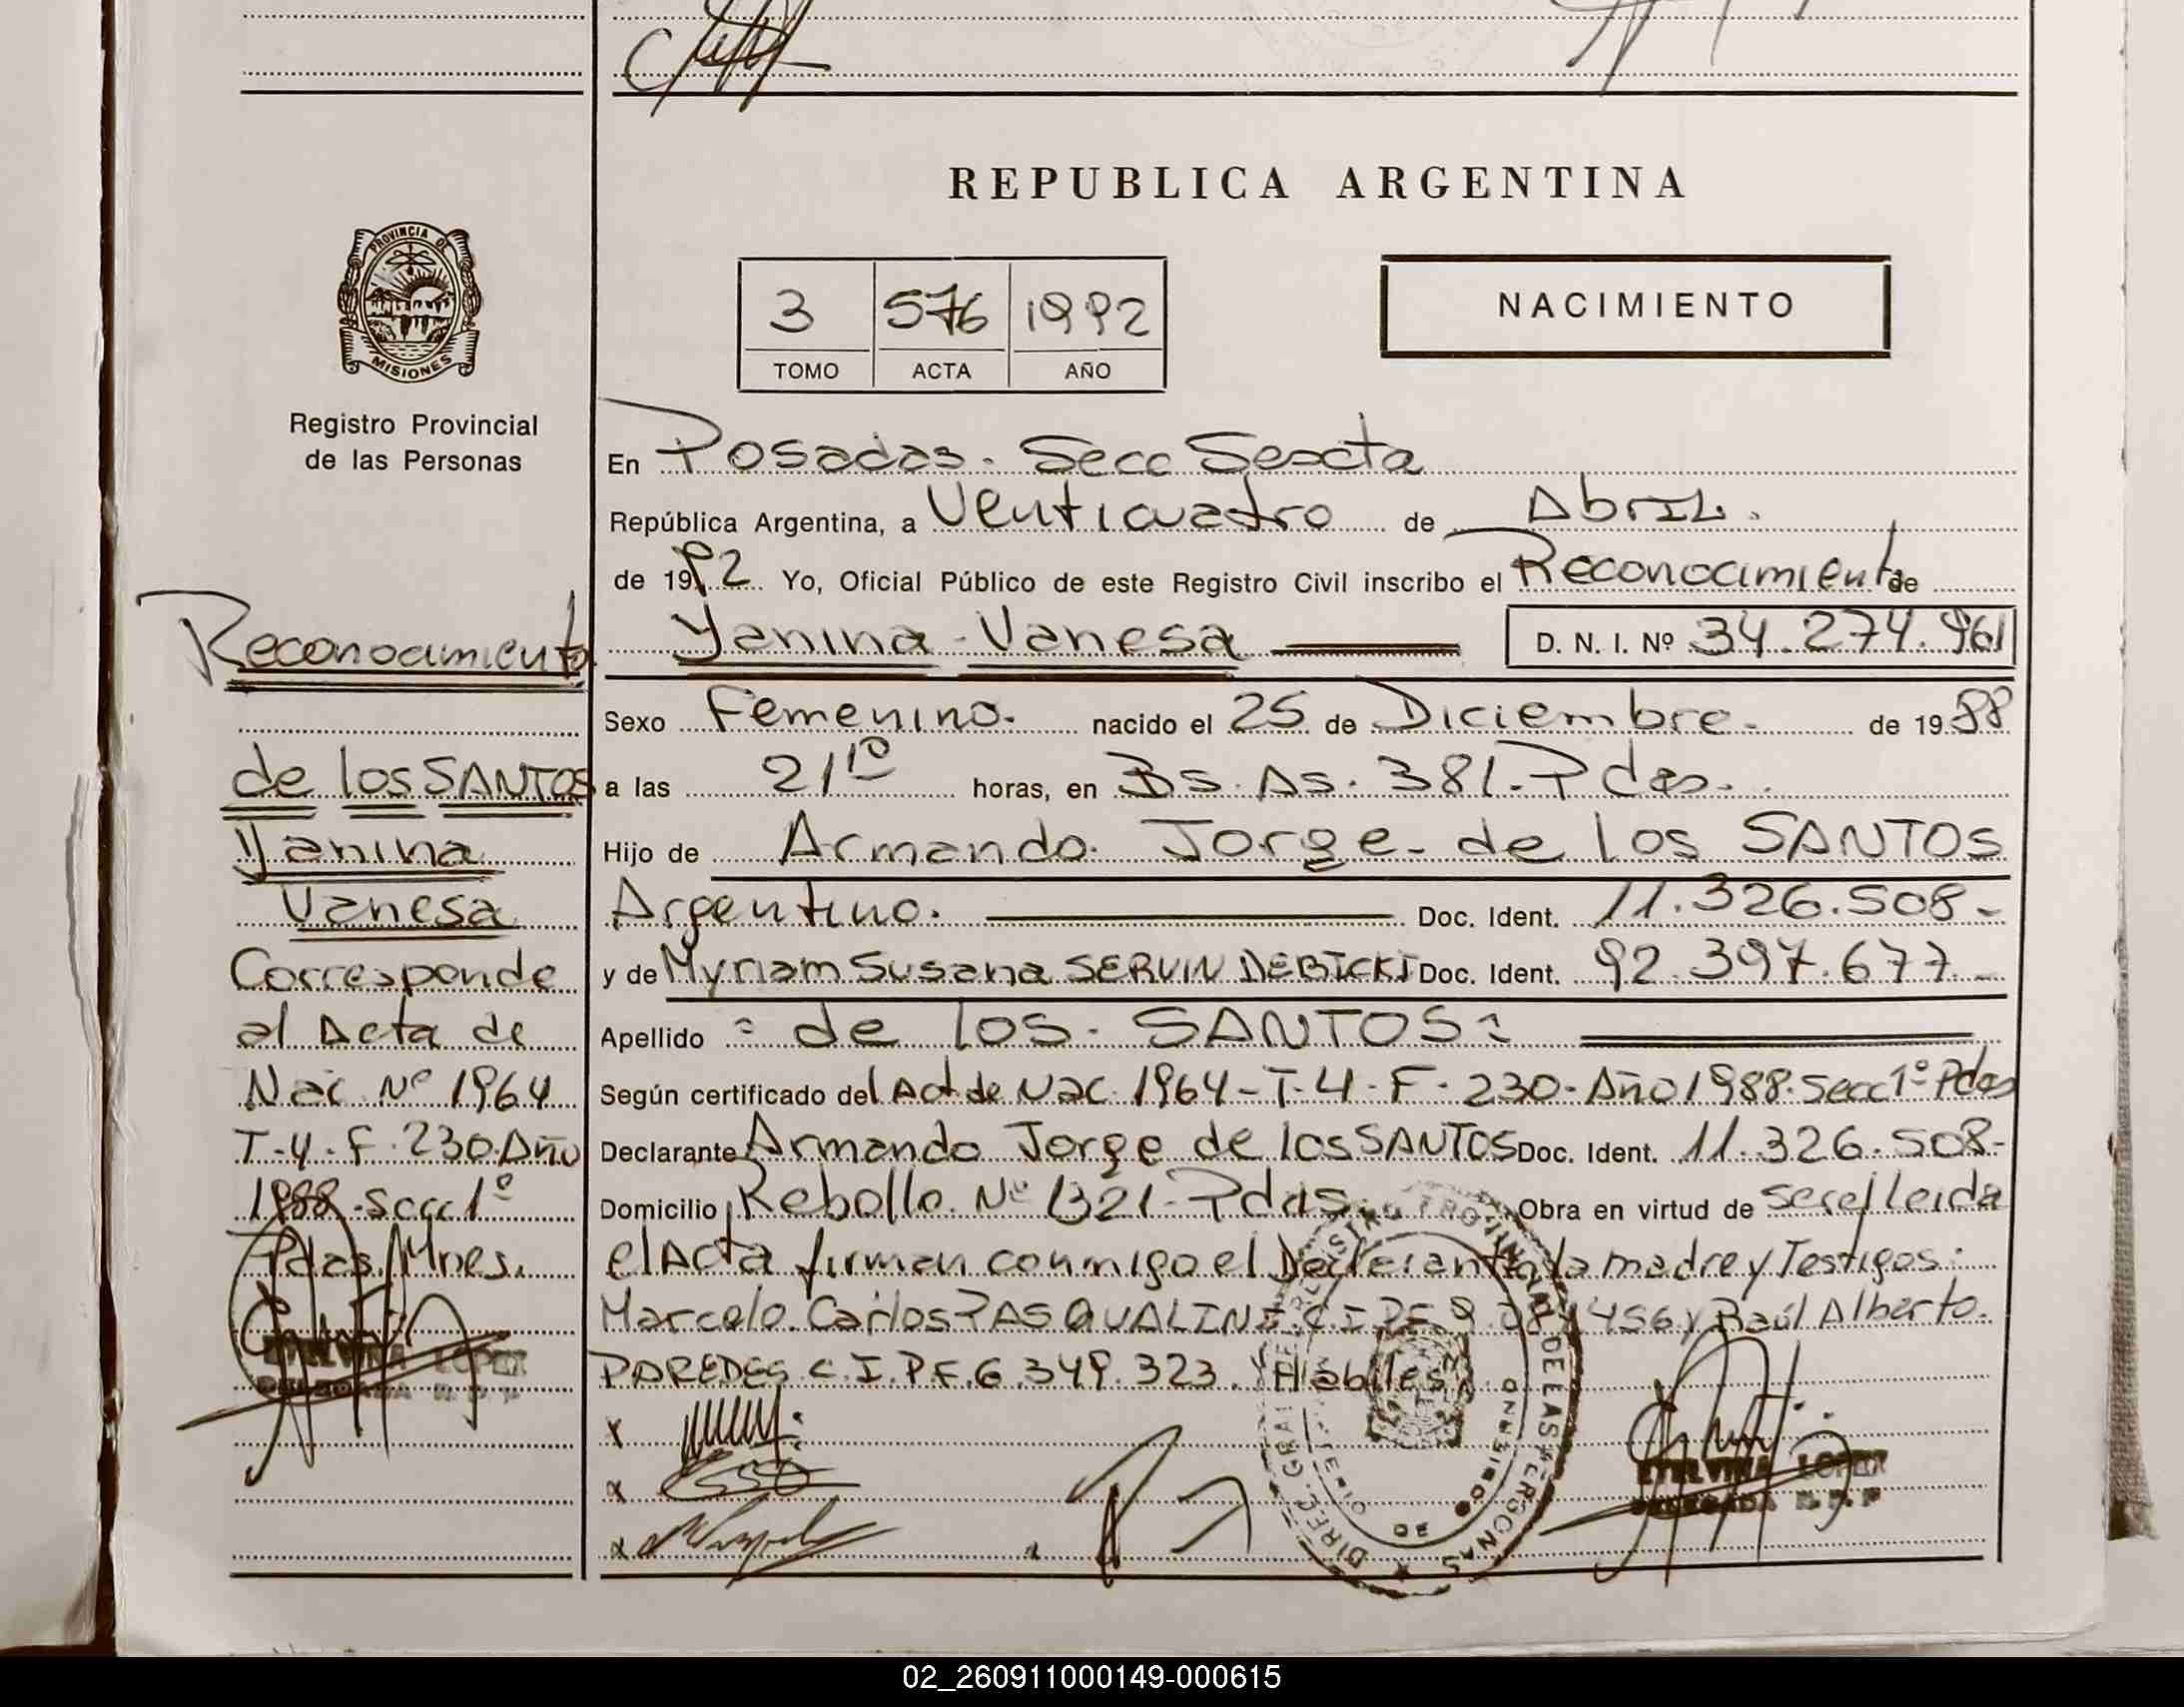 REPUBLICA ARGENTINA
PROVINCIA DE
MISIONES
3 576 1992
TOMO ACTA AÑO
NACIMIENTO
Registro Provincial
de las Personas
En Posadas. Secc Sexcta
República Argentina, a Venticuatro de Abril.
de 1992 Yo, Oficial Público de este Registro Civil inscribo el Reconocimiento de
Yanina Vanesa D. N. I. Nº 34.274.961
Sexo Femenino. nacido el 25 de Diciembre. de 1988
a las 21 10 horas, en Bs. As. 381. Pdas.
Hijo de Armando Jorge de los SANTOS
Argentino. Doc. Ident. 11.326.508-
y de Myriam Susana SERVIN DEBICKI Doc. Ident. 92.397.677-
Apellido = de los SANTOS =
Según certificado del Act de Nac 1964-T-4-F-230-Año 1988. Secc 1º Pdas
Declarante Armando Jorge de los SANTOS Doc. Ident. 11.326.508-
Domicilio Rebollo Nº 1321-Pdas. Obra en virtud de leida
el Acta firman conmigo el Declarante la madre y Testigos:
Marcelo Carlos PASQUALINI C.I.P.F. y Raúl Alberto
PAREDES C.I.P.F. 6.349.323. Habiles
x
x
x
x
Reconocimiento
de los SANTOS
Yanina
Vanesa
Corresponde
al Acta de
Nac Nº 1964
T-4-F-230-Año
1988-Secc 1º
Pdas. Mnes.
ETELVINA LOPEZ
DELEGADA R. P. P
ETELVINA LOPEZ
DELEGADA R. P. P
DE LAS PERSONAS
02_260911000149-000615